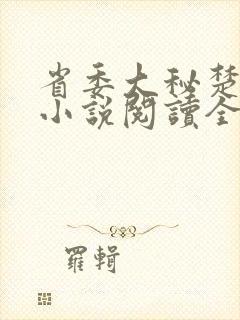 省委大秘楚
小說閱讀全
羅輯